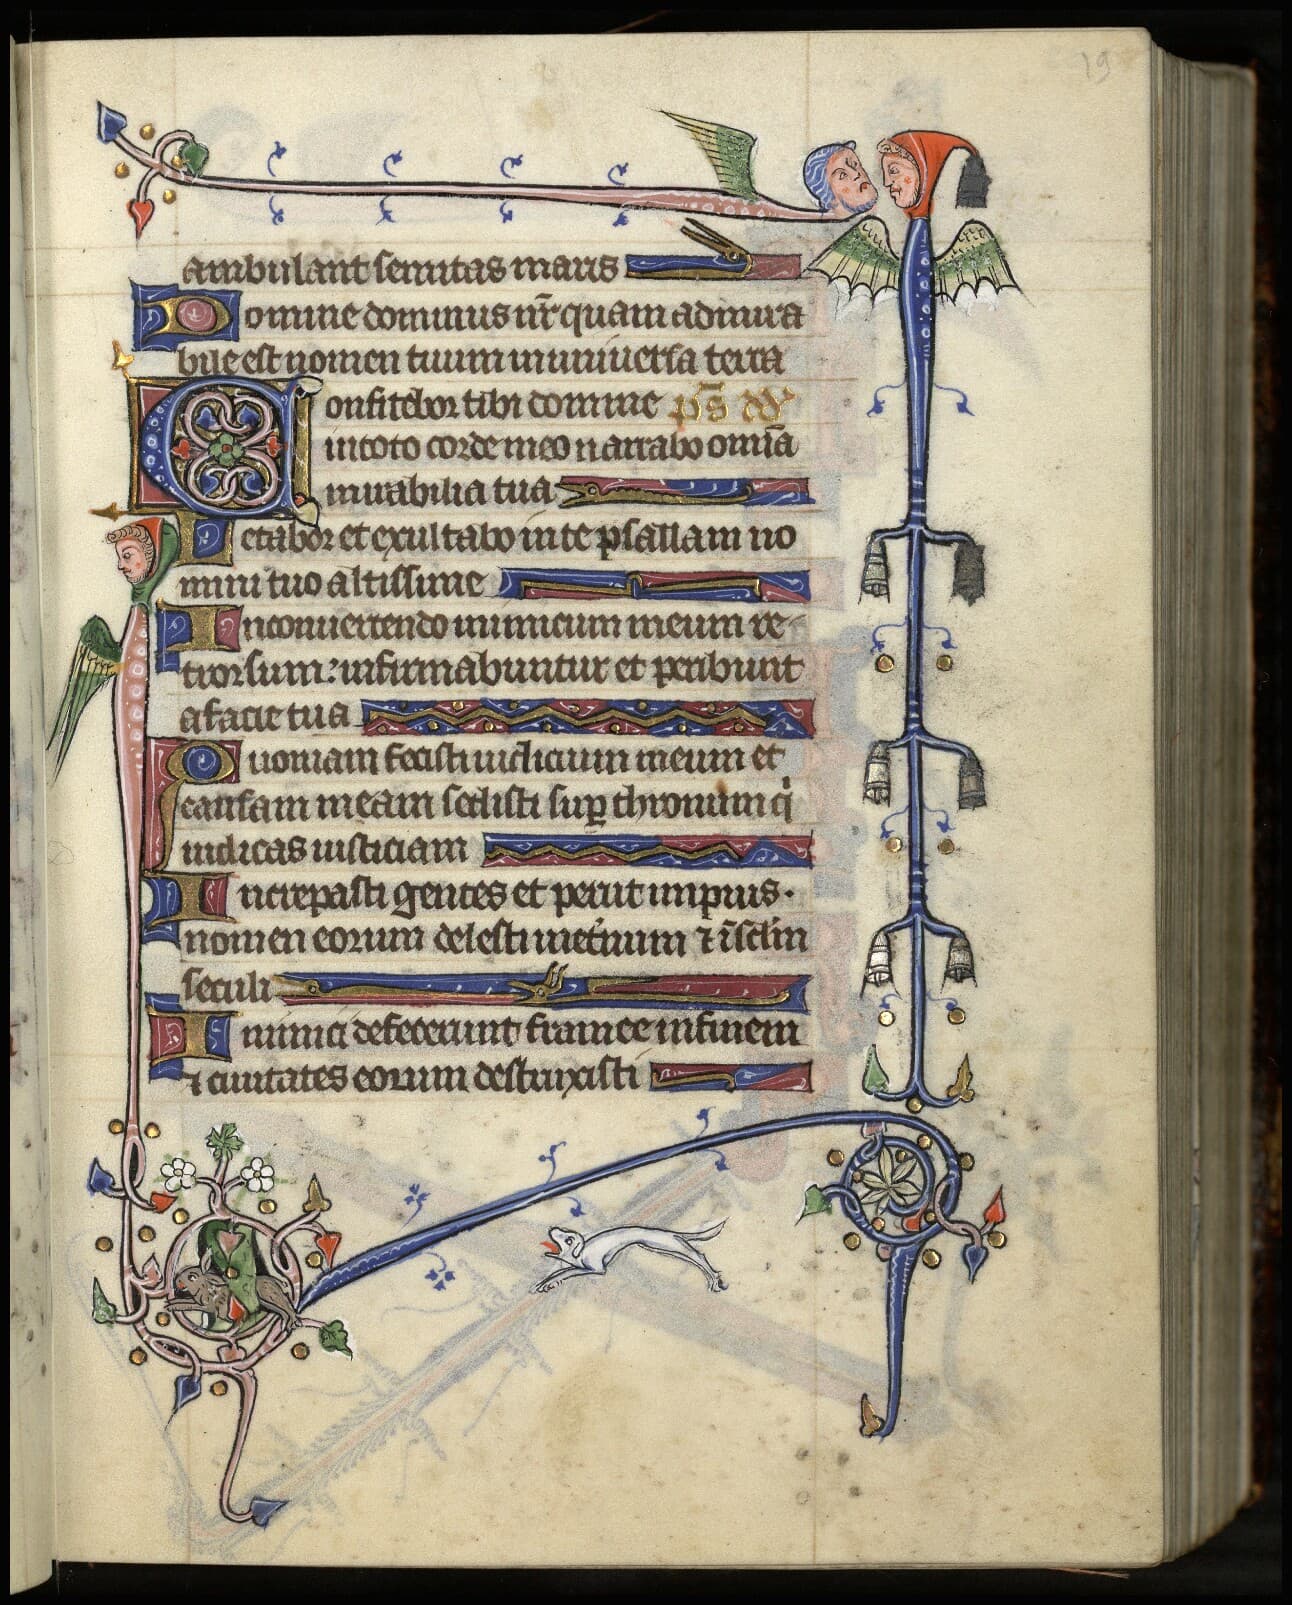 19
ambulant semitas maris
Domine dominus nr̄ quam admira
bile est nomen tuum in uniuersa terra
Confitebor tibi domine ps̄ dd
in toto corde meo narrabo om̄ia
mirabilia tua
Letabor et exultabo in te psallam no
mini tuo altissime
In conuertendo inimicum meum re-
trorsum: infirmabuntur et peribunt
a facie tua
Quoniam fecisti iudicium meum et
causam meam sedisti suꝑ thronum qͥ
iudicas iusticiam
Increpasti gentes et periit impius·
nomen eorum delesti inet̾num ⁊ ī sclm̄
seculi
Inimici defecerunt framee in finem
⁊ ciuitates eorum destruxisti